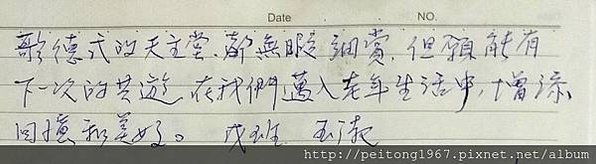 Date NO.
歌德式的天主堂,都無暇細賞,但願能有
下一次的共遊,在我們邁入老年生活中,增添
回憶和美好。 戊班 玉
http://peitong1967.pixnet.net/album